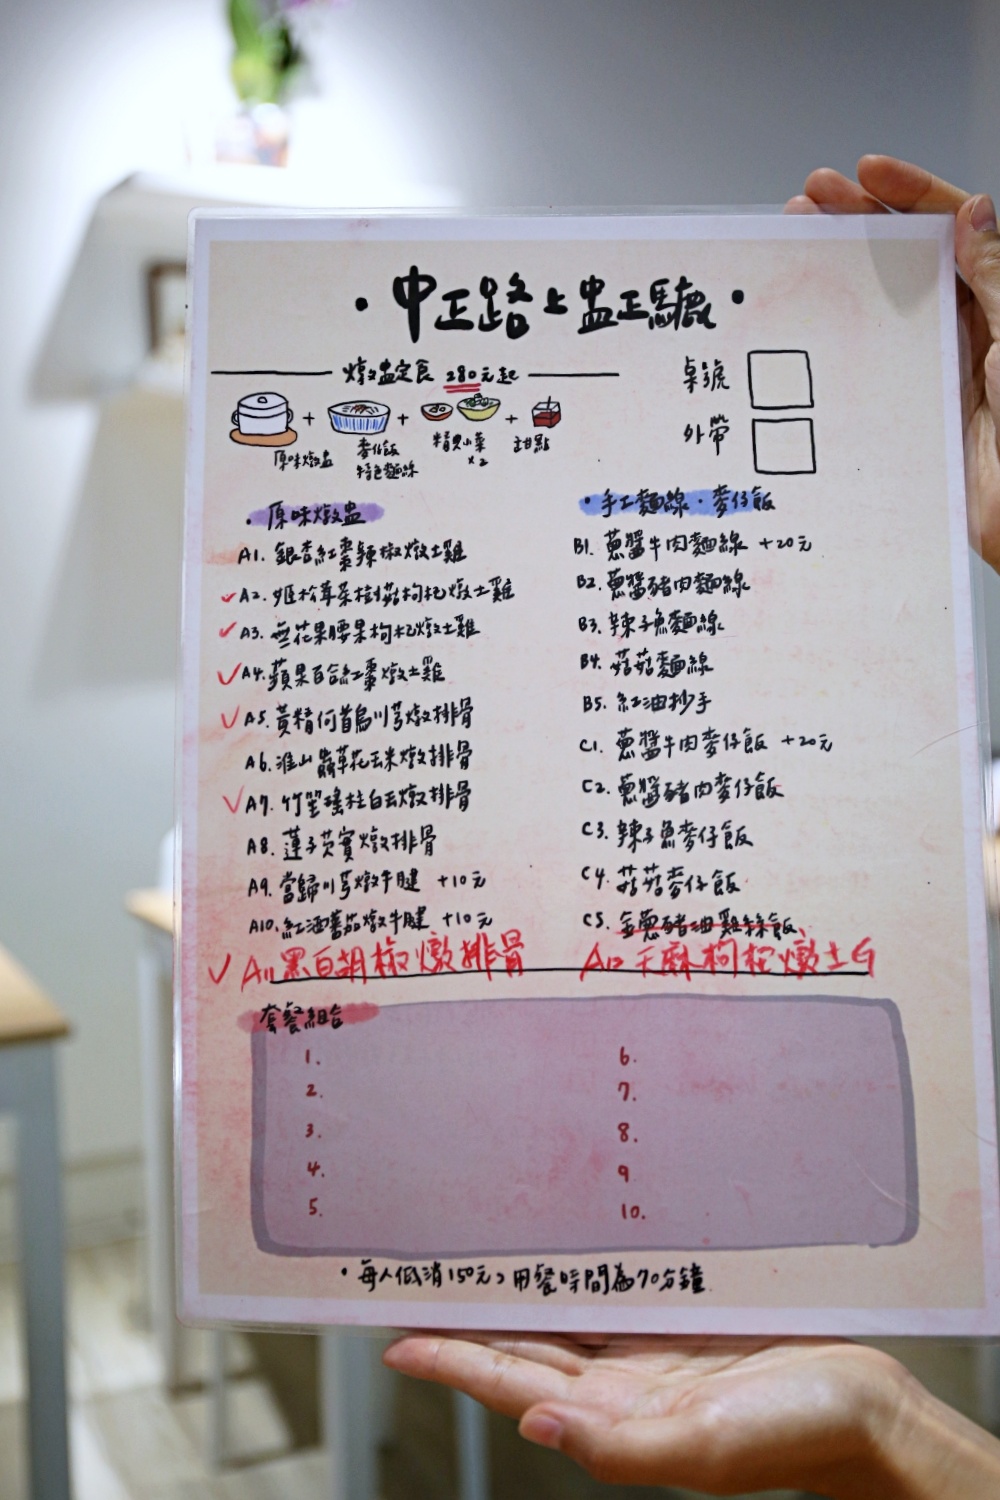 ·中正路上盅正驗·
燉盅定食 280元起
桌號
外帶
+ + +
原味燉盅
麥仔飯
特色麵線
精美小菜
x2
甜點
·原味燉盅
A1. 銀杏紅棗辣椒燉土雞
A2. 姬松茸茶樹菇枸杞燉土雞
A3. 無花果腰果枸杞燉土雞
A4. 蘋果百合紅棗燉土雞
A5. 黃精何首烏川芎燉排骨
A6. 淮山蟲草花玉米燉排骨
A7. 竹笙瑤柱白玉燉排骨
A8. 蓮子芡實燉排骨
A9. 當歸川芎燉牛腱 +10元
A10. 紅酒蕃茄燉牛腱 +10元
A11 黑白胡椒燉排骨
·手工麵線·麥仔飯
B1. 蔥醬牛肉麵線 +20元
B2. 蔥醬豬肉麵線
B3. 辣子魚麵線
B4. 菇菇麵線
B5. 紅油抄手
C1. 蔥醬牛肉麥仔飯 +20元
C2. 蔥醬豬肉麥仔飯
C3. 辣子魚麥仔飯
C4. 菇菇麥仔飯
C5. 金蔥豬油雞絲飯
A12 天麻枸杞燉土G
套餐組合
1.
2.
3.
4.
5.
6.
7.
8.
9
10.
·每人低消150元,用餐時間為70分鐘